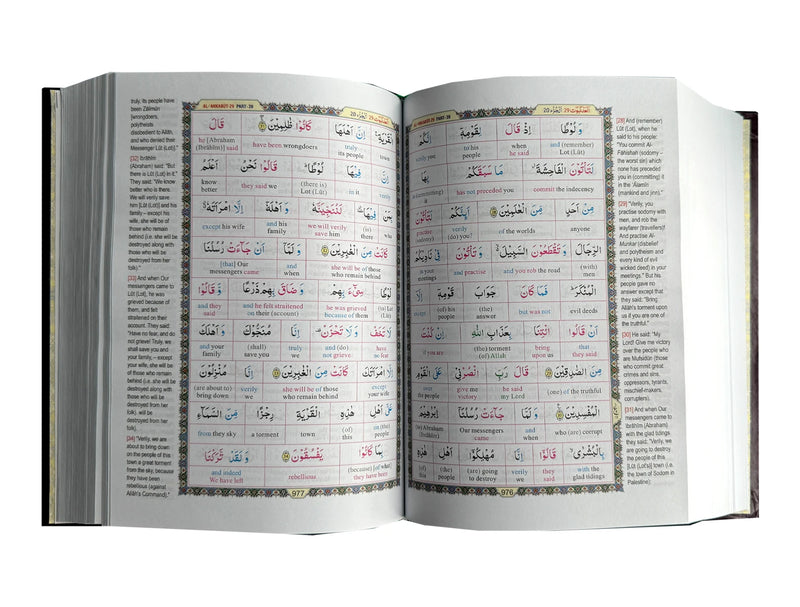 العنكبوت 29 الجزء 20
وَ لُوطًا اِذْ قَالَ لِقَوْمِهٖۤ اِنَّكُمْ
and (remember) Lot (Lût) when he said to his people verily you
لَتَاْتُوْنَ الْفَاحِشَةَ مَا سَبَقَكُمْ
commit the indecency has not preceded you
مِنْ اَحَدٍ مِّنَ الْعٰلَمِيْنَ اَئِنَّكُمْ لَتَاْتُوْنَ
anyone of the worlds (do) verily you practise (sodomy)
الرِّجَالَ وَ تَقْطَعُوْنَ السَّبِيْلَ وَ تَاْتُوْنَ فِيْ نَادِيْكُمُ
(with) men and you rob the road and practise
الْمُنْكَرَ فَمَا كَانَ جَوَابَ قَوْمِهٖۤ اِلَّاۤ
evil deeds but was not (the) answer (of) his people except
اَنْ قَالُوا ائْتِنَا بِعَذَابِ اللّٰهِ اِنْ كُنْتَ
that they said: bring upon us (the) torment (of) Allah if you are
مِنَ الصّٰدِقِيْنَ قَالَ رَبِّ انْصُرْنِيْ عَلَى الْقَوْمِ
(one) of the truthful he said my Lord give me victory over the people
الْمُفْسِدِيْنَ وَ لَمَّا جَآءَتْ رُسُلُنَاۤ اِبْرٰهِيْمَ
who (are) corrupt and when came Our messengers (to) Abraham (Ibrâhîm)
بِالْبُشْرٰى قَالُوْۤا اِنَّا مُهْلِكُوْۤا اَهْلِ
with the glad tidings they said verily we (are) going to destroy (the) people (of)
976
[28] And (remember)
Lût (Lot), when he
said to his people:
"You commit Al-
Fâhishah (sodomy –
the worst sin) which
none has preceded
you in (committing) it
in the 'Âlamîn
(mankind and jinn)."
[29] "Verily, you
practise sodomy with
men, and rob the
wayfarer (travellers)!
And practise Al-
Munkar (disbelief
and polytheism and
every kind of evil
wicked deed) in your
meetings." But his
people gave no
answer except that
they said: "Bring
Allâh's torment upon
us if you are one of
the truthful."
[30] He said: "My
Lord! Give me victory
over the people who
are Mufsidûn (those
who commit great
crimes and sins,
oppressors, tyrants,
mischief-makers,
corrupters).
[31] And when Our
messengers came to
Ibrâhîm (Abraham)
with the glad tidings
they said: "Verily, we
are going to destroy
the people of this
[Lût (Lot)'s] town (i.e.
the town of Sodom in
Palestine)
PART-20
العنكبوت 29 الجزء 20
الْقَرْيَةِ اِنَّ اَهْلَهَا كَانُوْا ظٰلِمِيْنَ قَالَ
town truly its people have been wrongdoers he [Abraham (Ibrâhîm)] said
اِنَّ فِيْهَا لُوْطًا قَالُوْا نَحْنُ اَعْلَمُ
in it (there is) Lot (Lût) they said we know better
بِمَنْ فِيْهَا لَنُنَجِّيَنَّهٗ وَ اَهْلَهٗۤ اِلَّا امْرَاَتَهٗ
who (is) there we will verily save him and his family except his wife
كَانَتْ مِنَ الْغٰبِرِيْنَ وَ لَمَّاۤ اَنْ جَآءَتْ رُسُلُنَا
she will be of those who remain behind and when [that] Our messengers came
لُوْطًا سِيْٓءَ بِهِمْ وَ ضَاقَ بِهِمْ ذَرْعًا وَّ قَالُوْا
(to) Lot (Lût) he was grieved because of them and he felt straitened on their (account) and they said
لَا تَخَفْ وَ لَا تَحْزَنْ اِنَّا مُنَجُّوْكَ وَ اَهْلَكَ
have no fear and (do) not grieve! truly we (shall) save you and your family
اِلَّا امْرَاَتَكَ كَانَتْ مِنَ الْغٰبِرِيْنَ اِنَّا مُنْزِلُوْنَ
except your wife she will be of those who remain behind verily we (are about to) bring down
عَلٰۤى اَهْلِ هٰذِهِ الْقَرْيَةِ رِجْزًا مِّنَ السَّمَآءِ
on (the) people (of) this town a torment from (the) sky
بِمَا كَانُوْا يَفْسُقُوْنَ وَ لَقَدْ تَّرَكْنَا
(because) [of] what they have been rebellious and indeed We have left
977
truly, its people have
been Zâlimûn
[wrongdoers,
polytheists
disobedient to Allâh,
and who denied their
Messenger Lût (Lot)]."
[32] Ibrâhîm
(Abraham) said: "But
there is Lût (Lot) in it."
They said: "We know
better who is there.
We will verily save
him [Lût (Lot)] and his
family – except his
wife, she will be of
those who remain
behind (i.e. she will be
destroyed along with
those who will be
destroyed from her
folk)."
[33] And when Our
messengers came to
Lût (Lot), he was
grieved because of
them, and felt
straitened on their
account. They said:
"Have no fear, and do
not grieve! Truly, we
shall save you and
your family, – except
your wife, she will be
of those who remain
behind (i.e. she will be
destroyed along with
those who will be
destroyed from her
folk).
[34] "Verily, we are
about to bring down
on the people of this
town a great torment
from the sky, because
they have been
rebellious (against
Allâh's Command)."